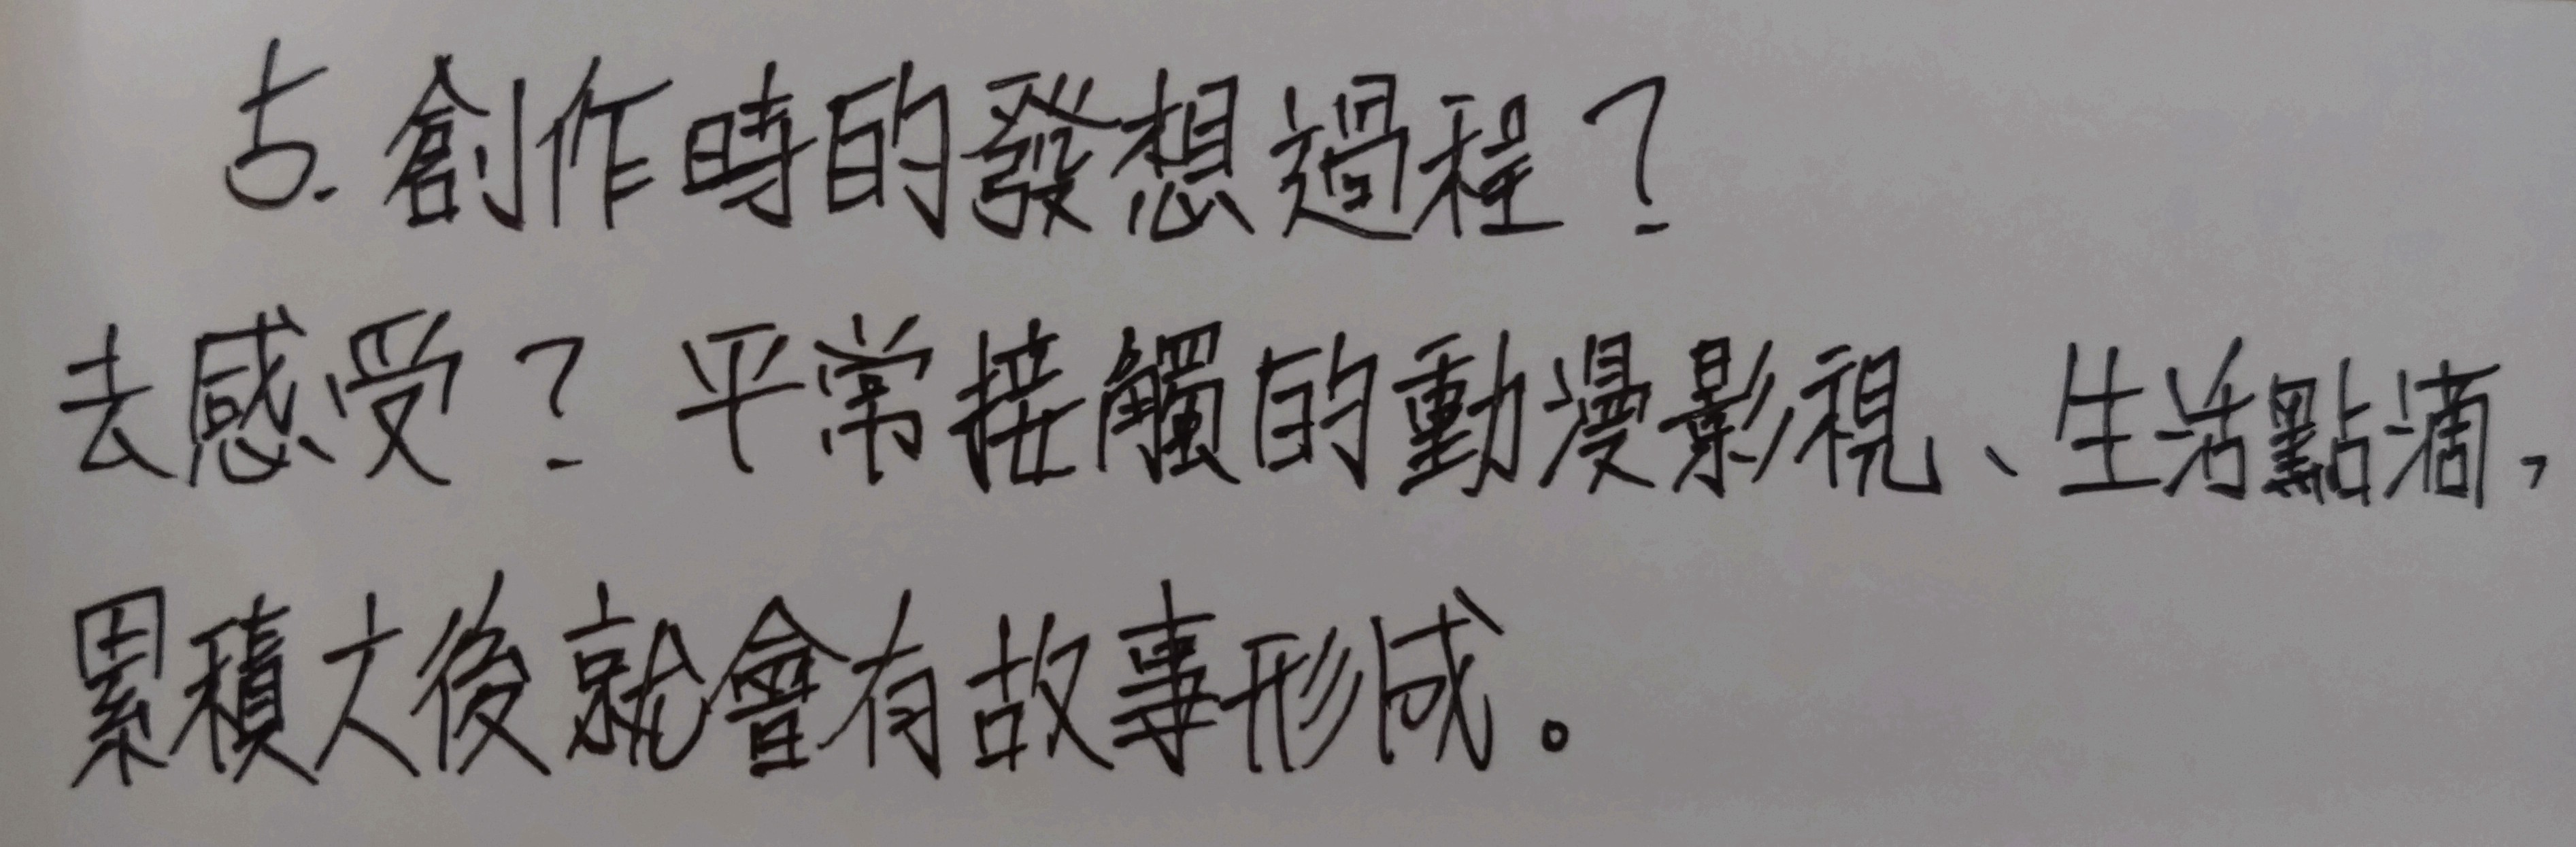 5. 創作時的發想過程？
去感受？平常接觸的動漫影視、生活點滴，
累積之後就會有故事形成。